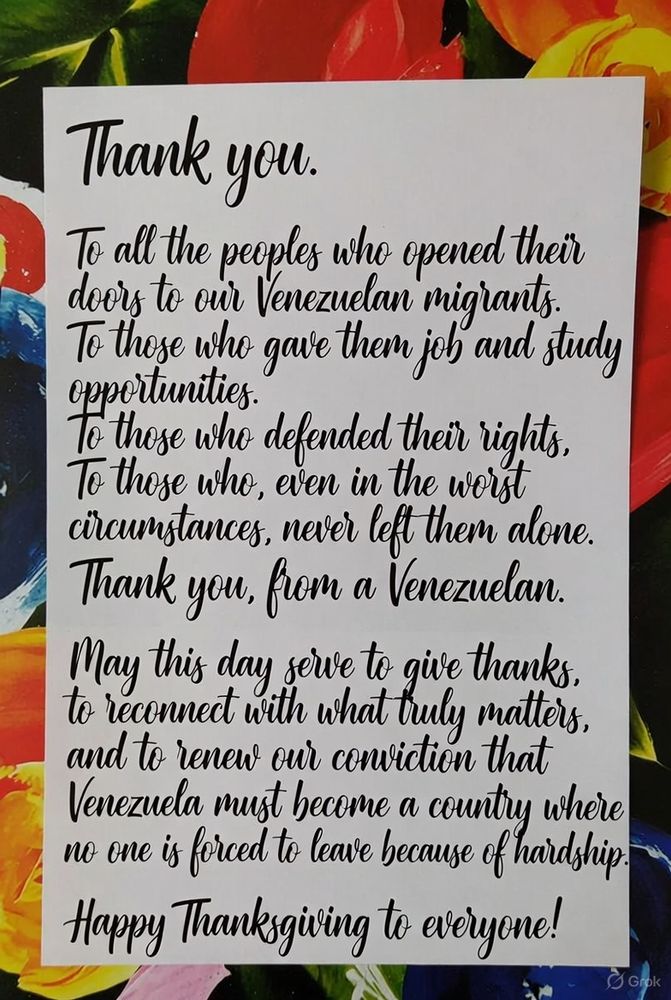 Thank you.
To all the peoples who opened their
doors to our Venezuelan migrants.
To those who gave them job and study
opportunities.
To those who defended their rights,
To those who, even in the worst
circumstances, never left them alone.
Thank you, from a Venezuelan.
May this day serve to give thanks,
to reconnect with what truly matters,
and to renew our conviction that
Venezuela must become a country where
no one is forced to leave because of hardship.
Happy Thanksgiving to everyone!
Grok